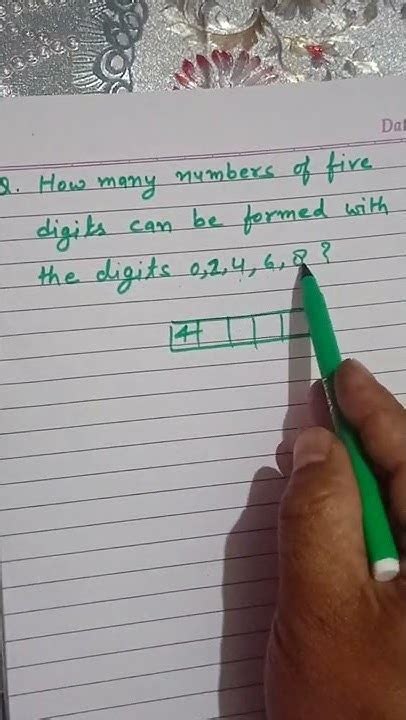 Dat
Q. How many numbers of five
digits can be formed with
the digits 0,2,4,6,8?
4